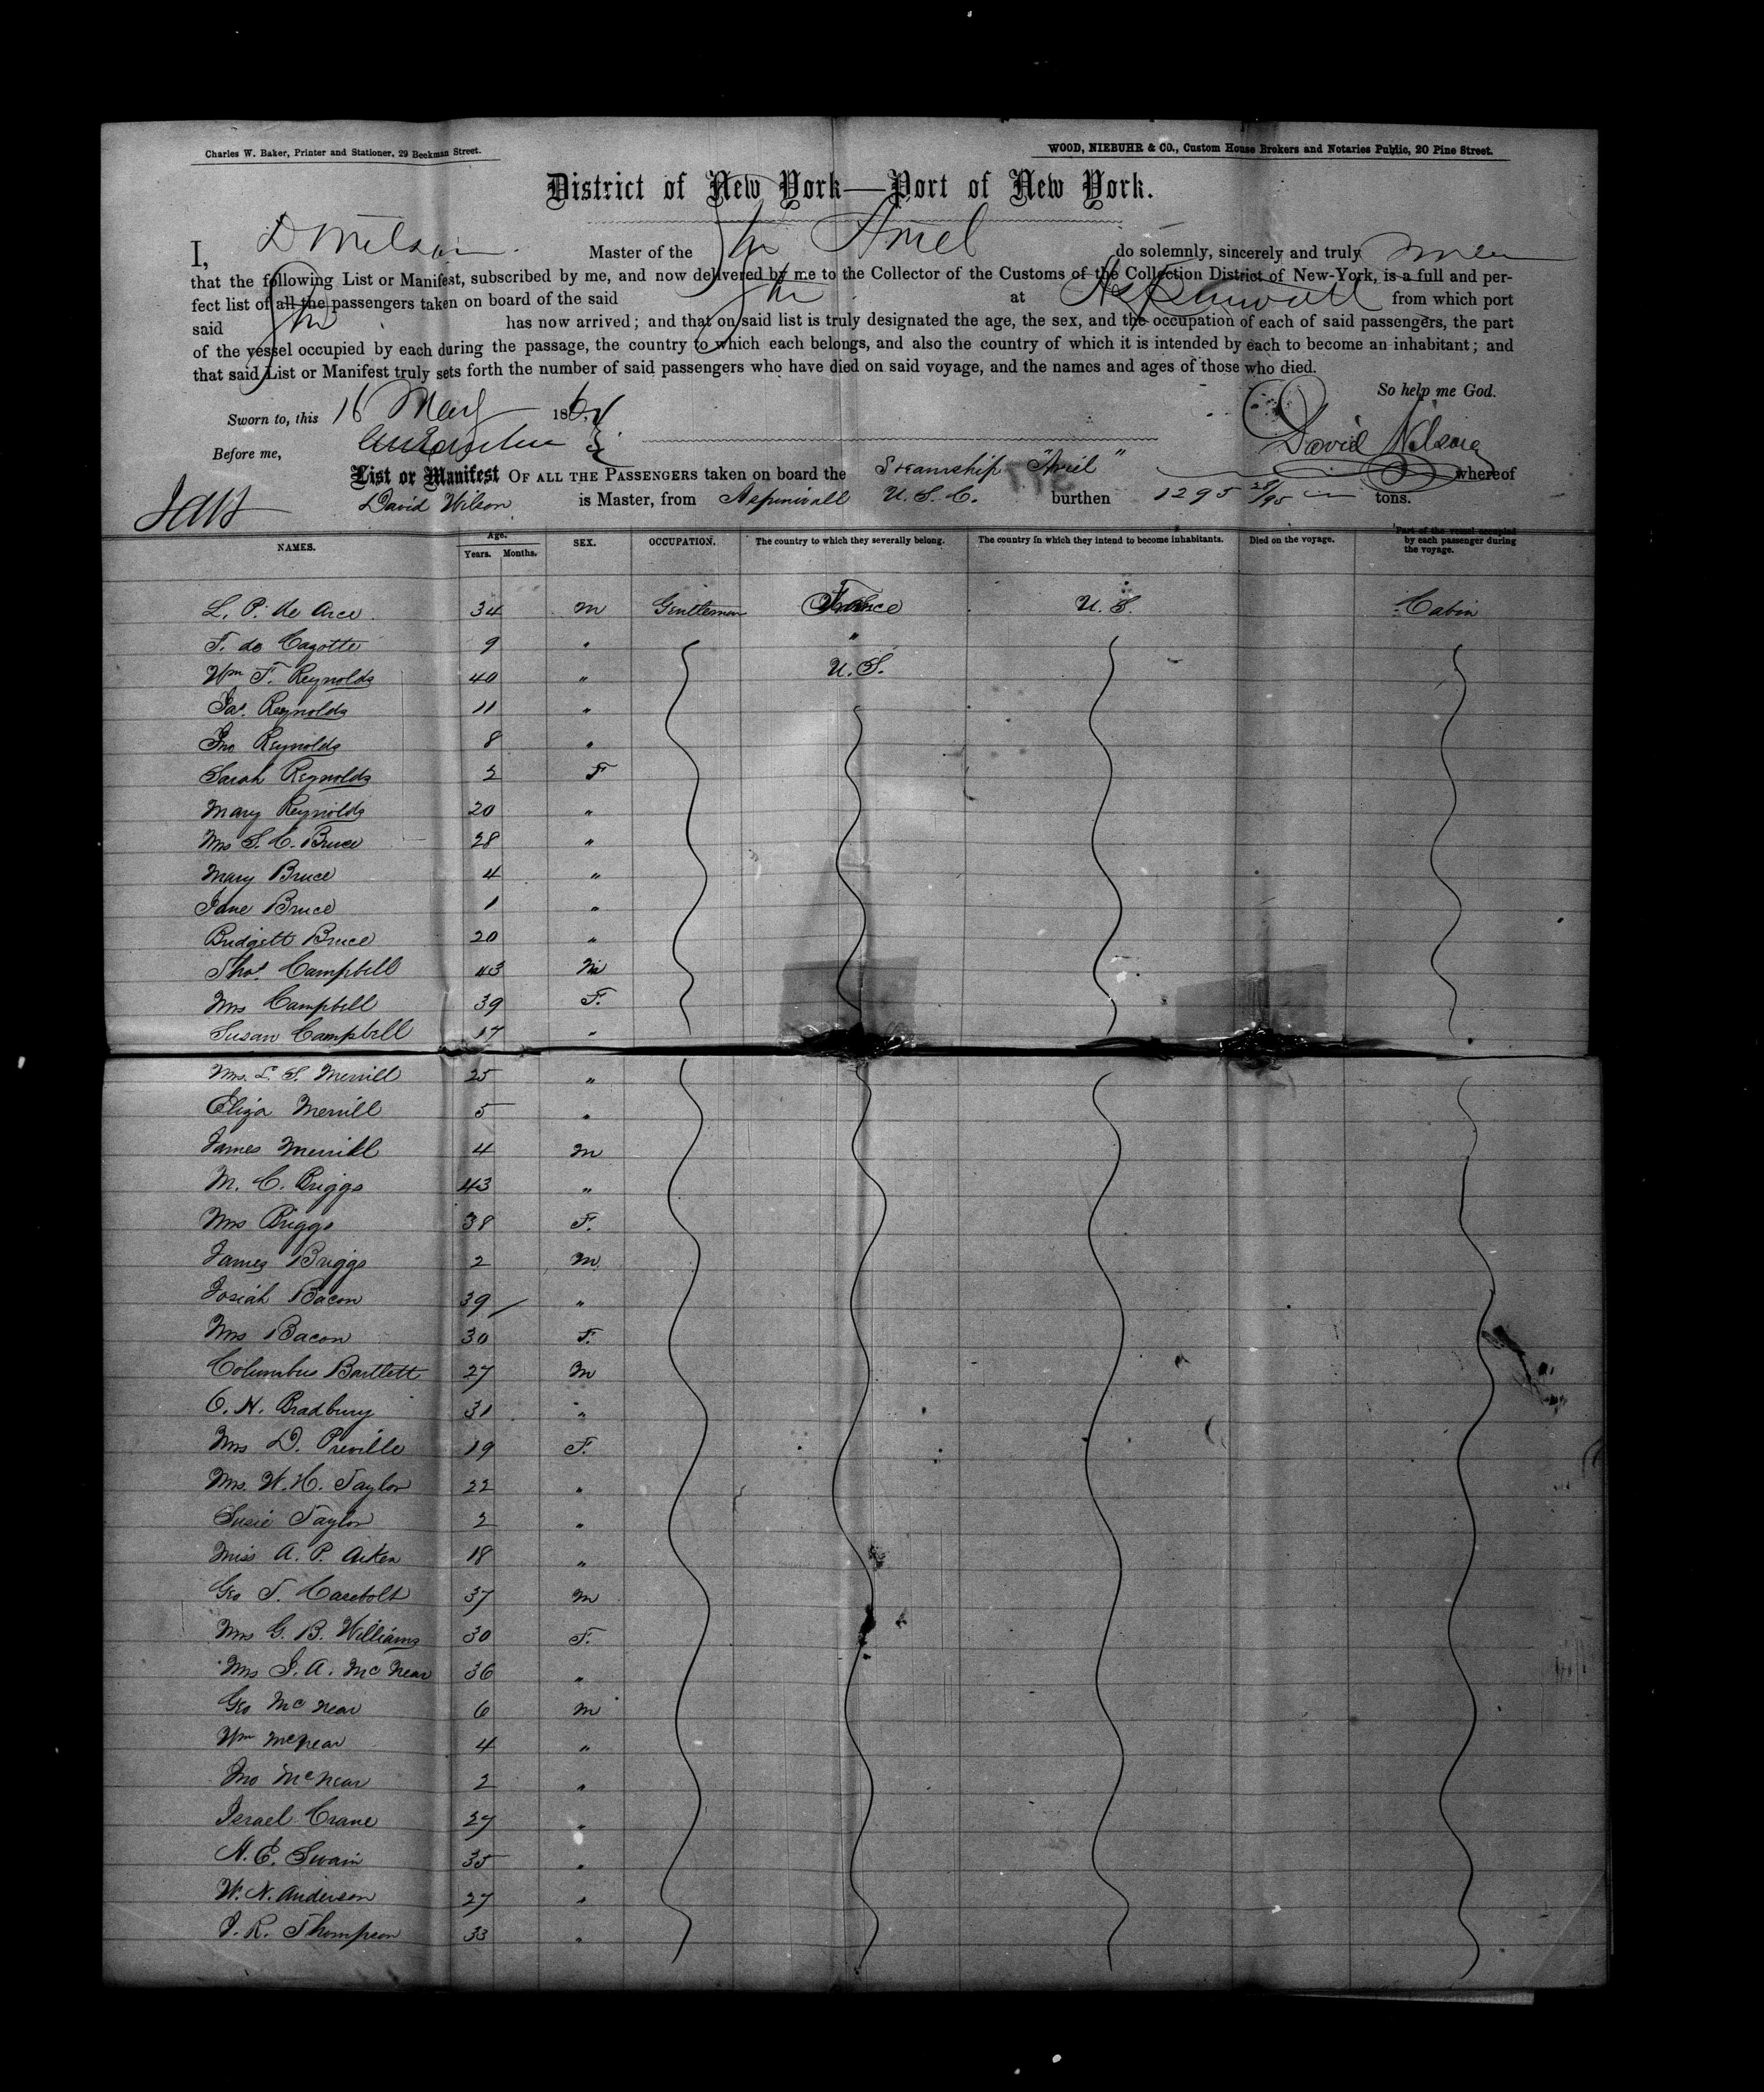 Charles W. Baker, Printer and Stationer, 29 Beekman Street.
WOOD, NIEBUHR & CO., Custom House Brokers and Notaries Public, 20 Pine Street.
District of New York—Port of New York.
I, D Wilson Master of the Str Ariel do solemnly, sincerely and truly
that the following List or Manifest, subscribed by me, and now delivered by me to the Collector of the Customs of the Collection District of New-York, is a full and per-
fect list of all the passengers taken on board of the said Str at Aspinwall from which port
said Str has now arrived; and that on said list is truly designated the age, the sex, and the occupation of each of said passengers, the part
of the vessel occupied by each during the passage, the country to which each belongs, and also the country of which it is intended by each to become an inhabitant; and
that said List or Manifest truly sets forth the number of said passengers who have died on said voyage, and the names and ages of those who died.
So help me God.
Sworn to, this 16 May 186
Before me,
David Wilson
List or Manifest OF ALL THE PASSENGERS taken on board the Steamship "Ariel" whereof
David Wilson is Master, from Aspinwall U.S.C. burthen 1295 28/95 tons.
NAMES. Age. Years. Months. SEX. OCCUPATION. The country to which they severally belong. The country in which they intend to become inhabitants. Died on the voyage. Part of the vessel occupied by each passenger during the voyage.
L. P. de Arce 34 M Gentleman France U. S. Cabin
T. de Cazotte 9 " "
Wm T. Reynolds 40 " U. S.
Jas. Reynolds 11 "
Jno Reynolds 8 "
Sarah Reynolds 2 F
Mary Reynolds 20 "
Mrs S. C. Bruce 28 "
Mary Bruce 4 "
Jane Bruce 1 "
Bridgett Bruce 20 "
Thos. Campbell 43 M
Mrs Campbell 39 F.
Susan Campbell 17 "
Mrs. L. S. Merrill 25 "
Eliza Merrill 5 "
James Merrill 4 M
M. C. Briggs 43 "
Mrs Briggs 38 F.
James Briggs 2 M
Josiah Bacon 39 "
Mrs Bacon 30 F.
Columbus Bartlett 27 M
O. H. Bradbury 31 "
Mrs D. Preville 19 F.
Mrs. W. H. Taylor 22 "
Susie Taylor 2 "
Miss A. P. Aiken 18 "
Geo T. Casebolt 37 M
Mrs G. B. Williams 30 F.
Mrs J. A. McNear 36 "
Geo McNear 6 M
Wm McNear 4 "
Jno McNear 2 "
Israel Crane 27 "
N. E. Swain 35 "
W. N. Anderson 27 "
J. R. Thompson 33 "